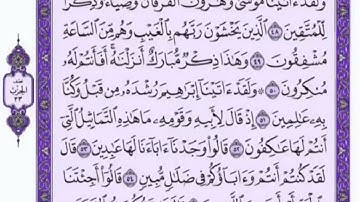 وَلَقَدْ ءَاتَيْنَا مُوسَىٰ وَهَٰرُونَ ٱلْفُرْقَانَ وَضِيَآءً وَذِكْرًا
لِّلْمُتَّقِينَ ٤٨ ٱلَّذِينَ يَخْشَوْنَ رَبَّهُم بِٱلْغَيْبِ وَهُم مِّنَ ٱلسَّاعَةِ
مُشْفِقُونَ ٤٩ وَهَٰذَا ذِكْرٌ مُّبَارَكٌ أَنزَلْنَٰهُ أَفَأَنتُمْ لَهُۥ
مُنكِرُونَ ٥٠ وَلَقَدْ ءَاتَيْنَآ إِبْرَٰهِيمَ رُشْدَهُۥ مِن قَبْلُ وَكُنَّا
بِهِۦ عَٰلِمِينَ ٥١ إِذْ قَالَ لِأَبِيهِ وَقَوْمِهِۦ مَا هَٰذِهِ ٱلتَّمَاثِيلُ ٱلَّتِىٓ
أَنتُمْ لَهَا عَٰكِفُونَ ٥٢ قَالُوا۟ وَجَدْنَآ ءَابَآءَنَا لَهَا عَٰبِدِينَ ٥٣ قَالَ
لَقَدْ كُنتُمْ أَنتُمْ وَءَابَآؤُكُمْ فِى ضَلَٰلٍ مُّبِينٍ ٥٤ قَالُوٓا۟ أَجِئْتَنَا
نصف
الحزب
٣٣